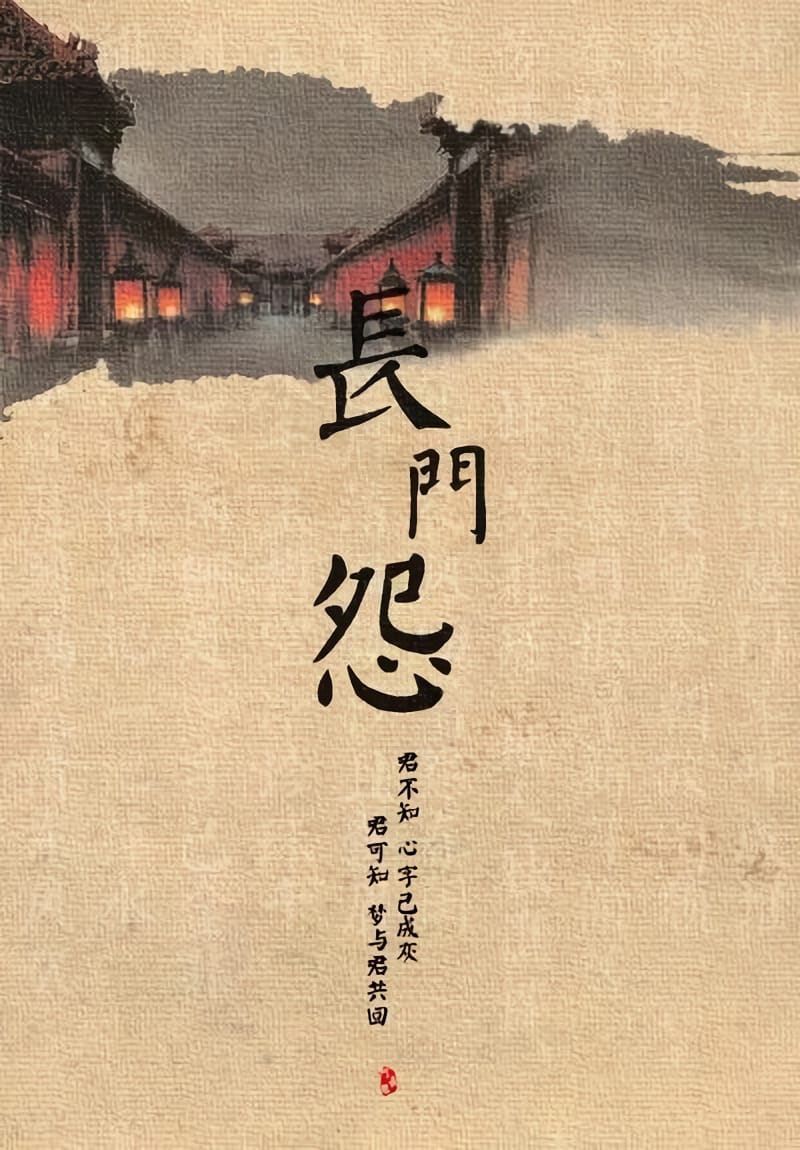 長門怨
君不知 心字已成灰
君可知 梦与君共回